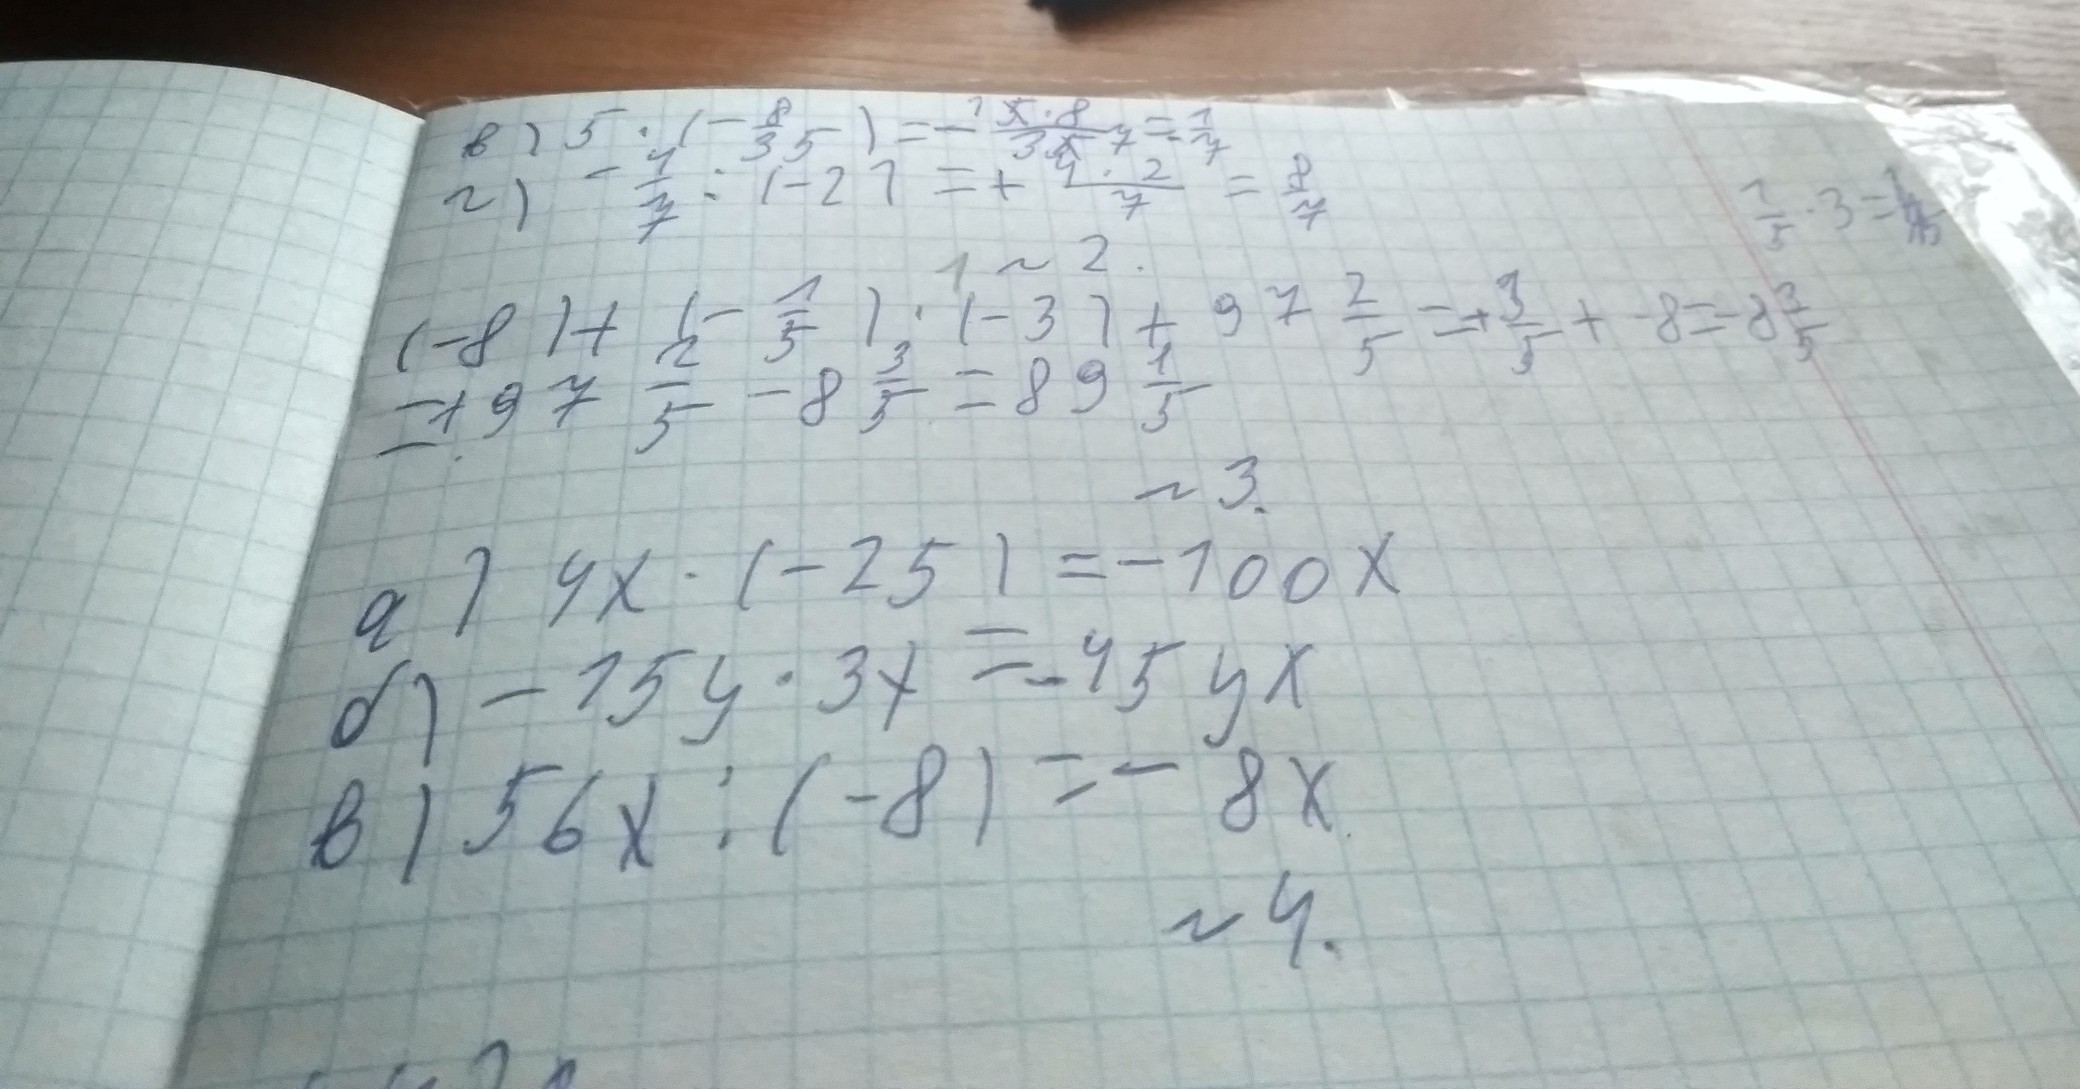 в) 5 · (-8/35) = - 5·8/35 7 = 1/7
г) - 4/7 : (-2) = + 4·2/7 = 8/7
1/5 · 3 =
~ 2.
(-8) + (- 1/5) · (-3) + 97 2/5 = + 3/5 + -8 = -8 3/5
= +97 2/5 - 8 3/5 = 89 1/5
~ 3.
а) 4x · (-25) = -100x
б) - 15y · 3x = -45yx
в) 56x : (-8) = - 8x
~ 4.